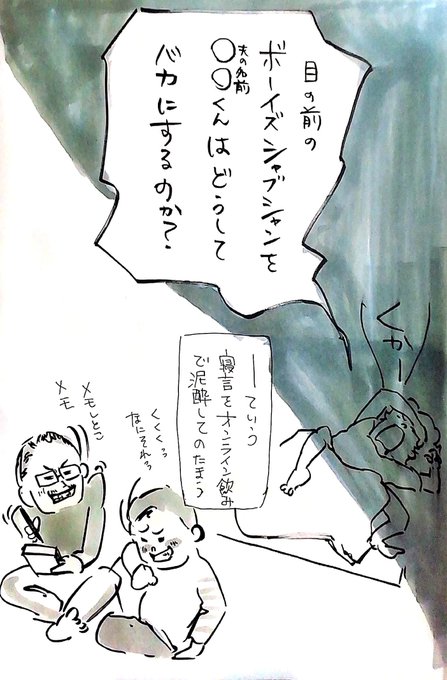 目の前の
ボーイズシャブシャンを
○○くんはどうして
夫の名前
バカにするのか?
くかー
ーていう
寝言をオンライン飲み
で泥酔してのたまう
くくくっ
なにそれっ
メモしとこ
メモ